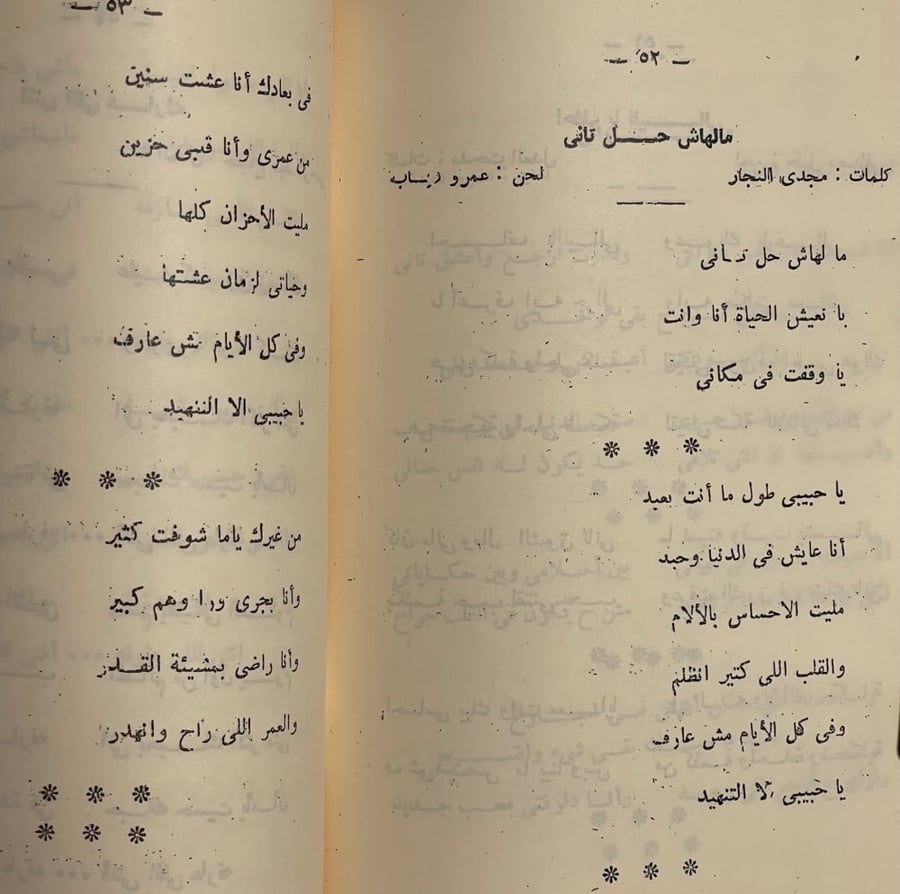 — ٥٢ —
مالهاش حـــل تانى
كلمات : مجدى النجار
لحن : عمرو
ما لهاش حل تـانى
با نعيش الحياة أنا وانت
يا وقفت فى مكانى
❊ ❊ ❊
يا حبيبى طول ما أنت بعيد
أنا عايش فى الدنيا وحيد
مليت الاحساس بالألام
والقلب اللى كتير انظلم
وفى كل الأيام مش عارف
يا حبيبى الا التنهيد
❊ ❊ ❊
— ٥٣ —
فى بعادك أنا عشت سنين
من عمرى وأنا قبى حزين
مليت الأحزان كلها
وحياتى لزمان عشتها
وفى كل الأيام مش عارف
يا حبيبى الا التنهيد
❊ ❊ ❊
من غيرك ياما شوفت كثير
وأنا بجرى ورا وهم كبير
وأنا راضى بمشيئة القـدر
والعمر اللى راح وانهدر
❊ ❊ ❊
❊ ❊ ❊